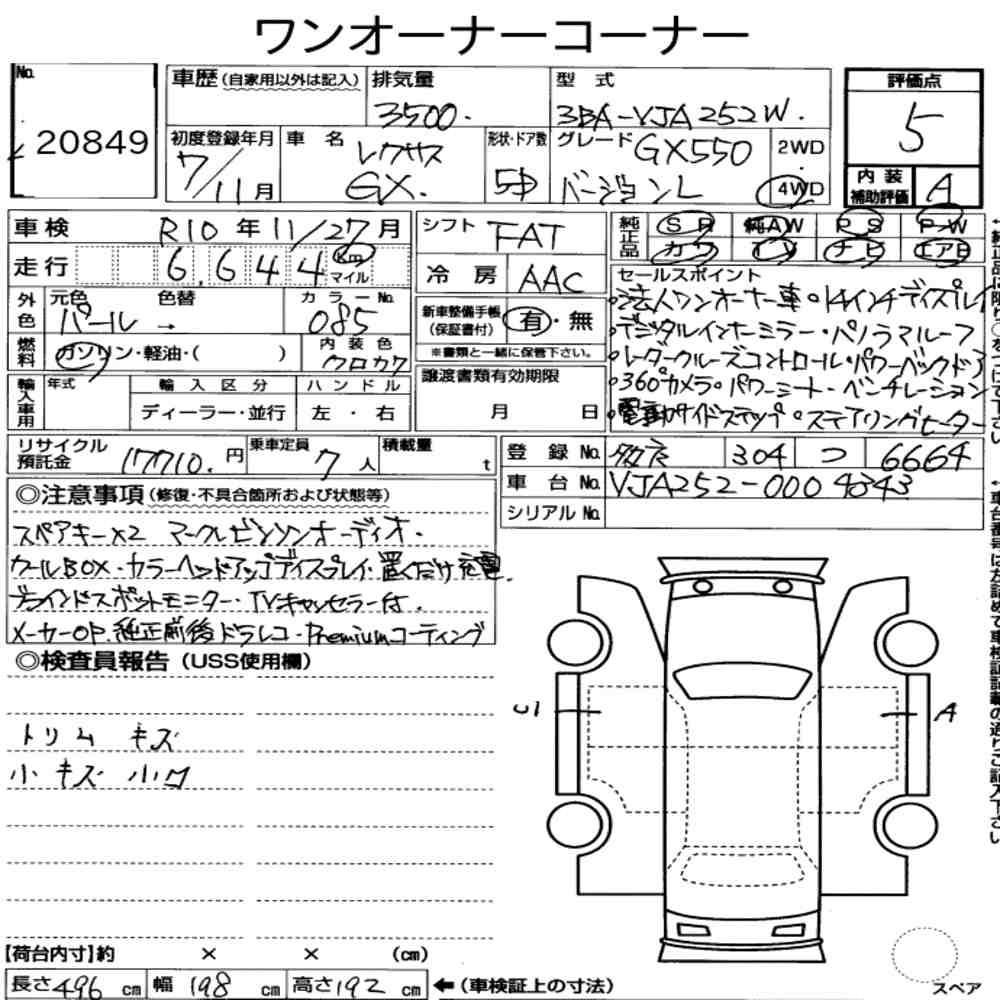 ワンオーナーコーナー
No. 20849
車歴（自家用以外は記入） 排気量 3500. 型式 3BA-VJA252W.
初度登録年月 7/11月 車名 レクサス GX. 形状・ドア数 5D グレード GX550 バージョンL 2WD 4WD
評価点 5
内装補助評価 A
車検 R10年11/27月 シフト FAT
純正品 SR 純AW PS PW
カワ TV ナビ エアB
走行 6,644 Km マイル 冷房 AAC
外色 元色 パール 色替 → カラーNo. 085
新車整備手帳（保証書付） 有・無
※書類と一緒に保管下さい。
燃料 ガソリン・軽油・( ) 内装色 クロカワ
輸入車用 年式 輸入区分 ハンドル
ディーラー・並行 左・右
譲渡書類有効期限 月 日
セールスポイント
・法人ワンオーナー車・14インチディスプレイ
・デジタルインナーミラー・パノラマルーフ
・レーダークルーズコントロール・パワーバックドア
・360°カメラ・パワーシート・ベンチレーション
・電動サイドステップ・ステアリングヒーター
リサイクル預託金 17710.円 乗車定員 7人 積載量 t
登録No. 多摩 304 つ 6664
車台No. VJA252-0004343
シリアルNo.
◎注意事項（修復・不具合箇所および状態等）
スペアキー×2 マークレビンソンオーディオ・
クールBOX・カラーヘッドアップディスプレイ・置くだけ充電.
ブラインドスポットモニター・TVキャンセラー付.
メーカーOP.純正前後ドラレコ・Premiumコーティング
◎検査員報告（USS使用欄）
トリム キズ
小キズ 小凹
U1
A
【荷台内寸】約 × × (cm)
長さ496cm 幅198cm 高さ192cm ←（車検証上の寸法）
スペア